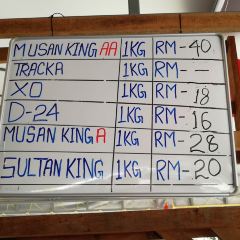 MUSAN KING AA 1KG RM-40
TRACKA 1KG RM- —
XO 1KG RM-18
D-24 1KG RM-16
MUSAN KING A 1KG RM-28
SULTAN KING 1KG RM-20